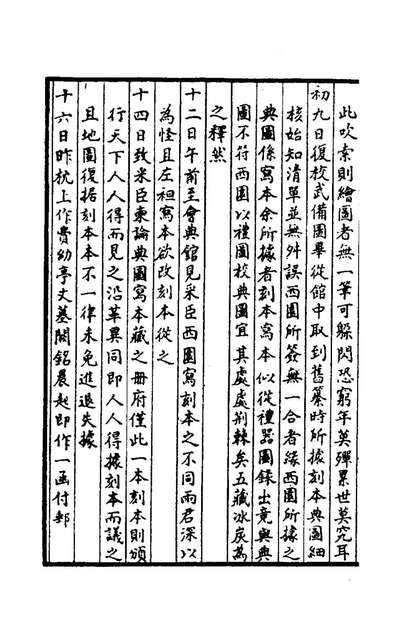 此吹索則繪圖者無一筆可躲閃恐窮年莫殫累世莫究耳
初九日復校武備圖畢從館中取到舊纂時所據刻本典圖細
核始知清單並無舛誤西園所簽無一合者緣西園所據之
典圖係寫本余所據者刻本寫本似從禮器圖錄出竟與典
圖不符西園以禮圖校典圖宜其處處荊棘矣五藏冰炭為
之釋然
十二日午前至會典館見采臣西園寫刻本之不同兩君深以
為怪且左袒寫本欲改刻本從之
十四日致采臣柬論典圖寫本藏之冊府僅此一本刻本則頒
行天下人人得而見之沿革異同即人人得據刻本而議之
且地圖復据刻本本不一律未免進退失據
十六日昨枕上作費幼亭丈墓闕銘晨起即作一函付郵